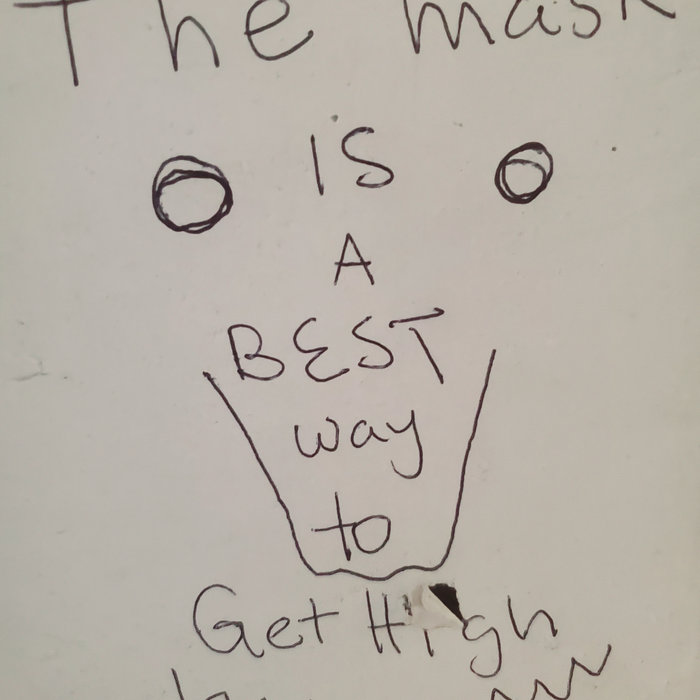 The mask
IS
A
BEST
way
to
Get High